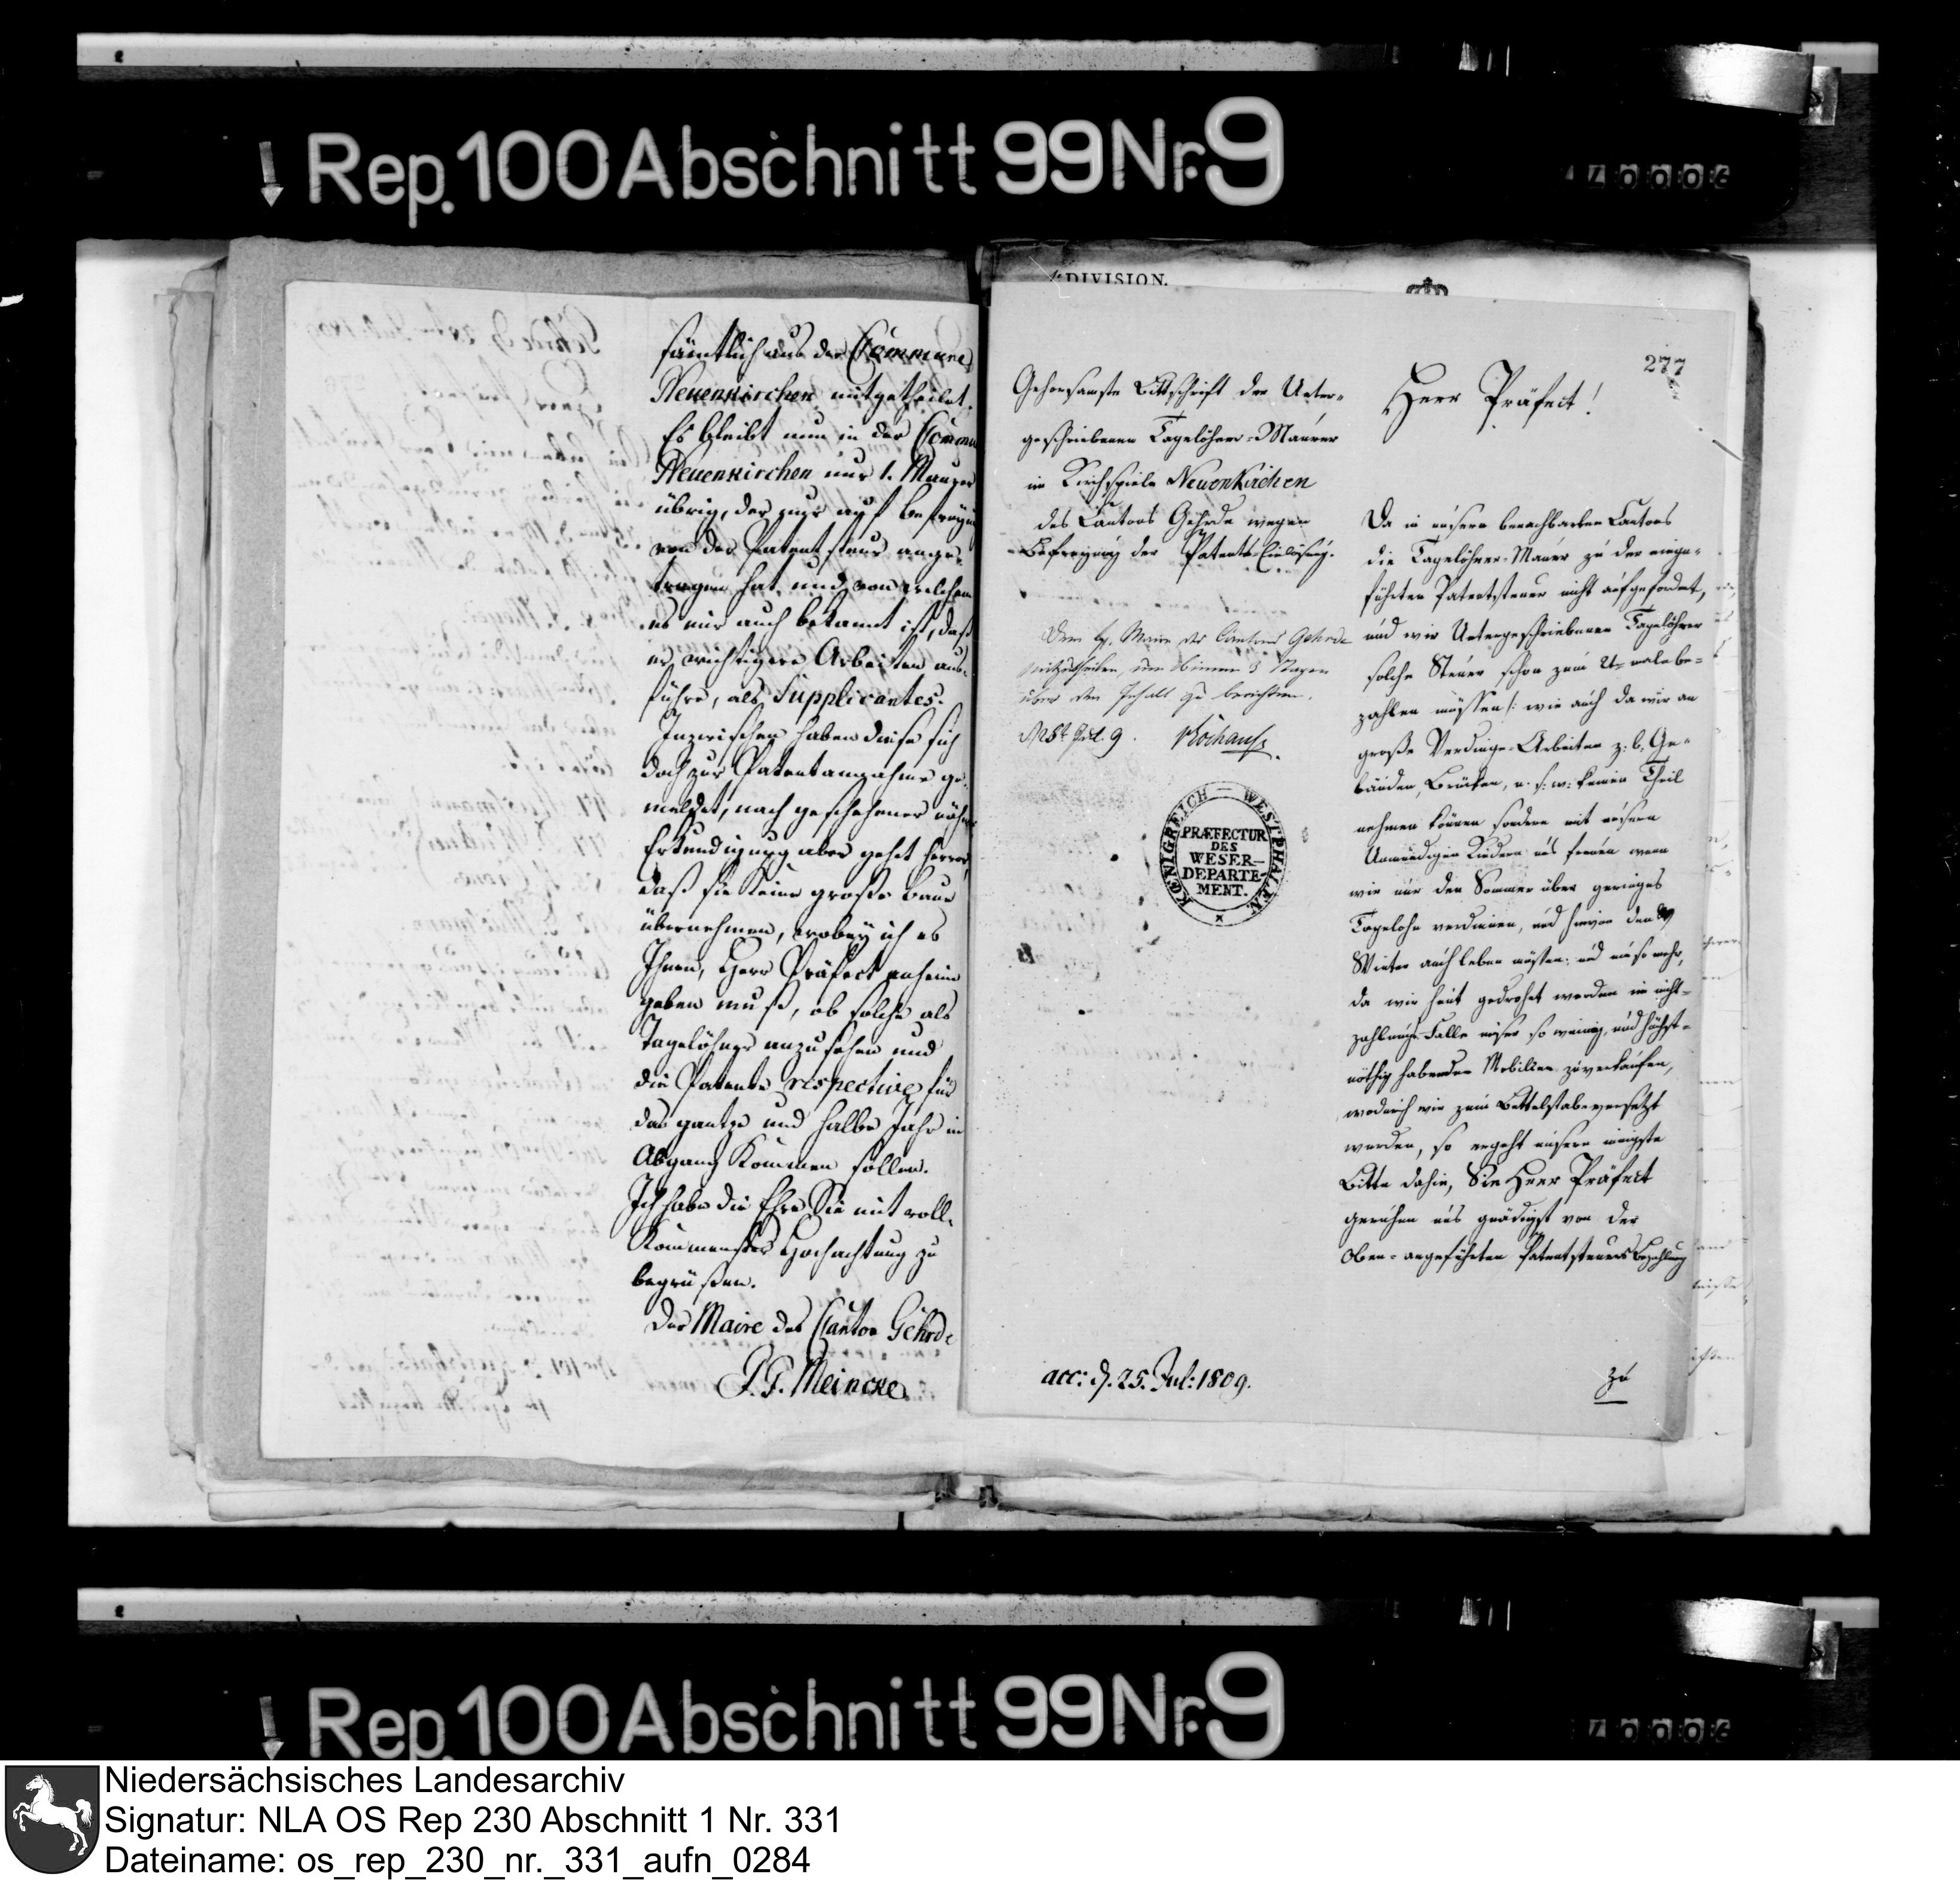 Rep. 100 Abschnitt 99 Nr. 9
sämtlich aus der Commune
Neuenkirchen mitgetheilet.
Es bleibt nun in der Commu
Neuenkirchen nur 1. Maurer
übrig, der zwar auf Befreyu
von der Patentsteuer ange-
tragen hat, und von welchem
es mir auch bekannt ist, daß
er wichtigere Arbeiten aus-
führe, als Supplicantes.
Inzwischen haben diese sich
doch zur Patentannahme ge-
meldet, nach geschehener nähe
Erkundigung aber gehet hervor
daß sie keine große Baue
übernehmen, wobey ich es
Ihnen, Herr Präfect anheim
geben muß, ob solche als
Tagelöhner anzusehen und
die Patente respective für
das gantze und halbe Jahr in
Abgang kommen sollen.
Ich habe die Ehre Sie mit voll-
kommenster Hochachtung zu
begrüßen.
Der Maire des Canton Gehrde
Meincke
DIVISION.
277
Gehorsamste Bittschrift der Unter-
geschriebenen Tagelöhner-Maurer
im Kirchspiele Neuenkirchen
des Cantons Gehrde wegen
Befreyung der Patents-Einlösung.
Dem H. Maire des Cantons Gehrde
mitzutheilen, um binnen 3 Tagen
über den Inhalt zu berichten.
KÖNIGREICH — WESTPHALEN.
PRÆFECTUR
DES
WESER-
DEPARTE-
MENT.
acc: d. 25. Jul: 1809.
Herr Präfect!
Da in unsern benachbarten Cantons
die Tagelöhner-Maurer zu der einge-
führten Patentsteuer nicht aufgefordert,
und wir Untergeschriebenen Tagelöhner
solche Steuer schon zum 2t-male be-
zahlen müssen /: wie auch da wir an
große Verdinge-Arbeiten z. b. Ge-
bäuden, Brücken, u. s. w. keinen Theil
nehmen können sondern mit unsern
Unmündigen Kindern uns freuen wenn
wir nur den Sommer über geringes
Tagelohn verdienen, und hievon den
Winter auch leben müssen; und um so mehr,
da wir heut gedrohet werden im nicht-
zahlungs-Falle unser so wenig, und höchst-
nöthig habenden Mobilien zu verkaufen,
wodurch wir zum Bettelstabe versetzt
werden, so ergeht unsere innigste
Bitte dahin, Sie Herr Präfect
geruhen uns gnädigst von der
Oben-angeführten Patentsteuers Bezahlung
zu
Rep. 100 Abschnitt 99 Nr. 9
Niedersächsisches Landesarchiv
Signatur: NLA OS Rep 230 Abschnitt 1 Nr. 331
Dateiname: os_rep_230_nr._331_aufn_0284